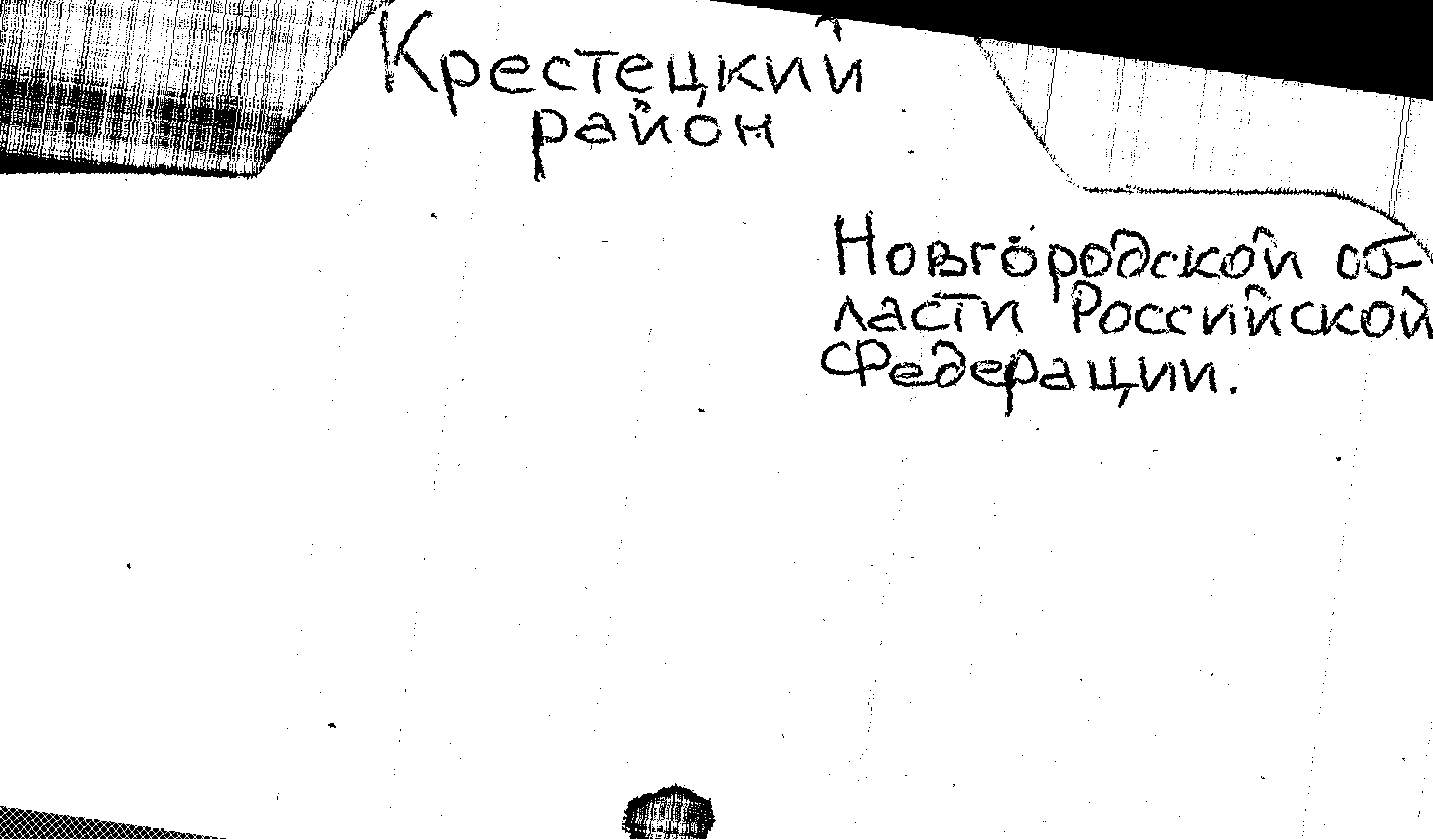 Крестецкий
район
Новгородской об-
ласти Российской
Федерации.